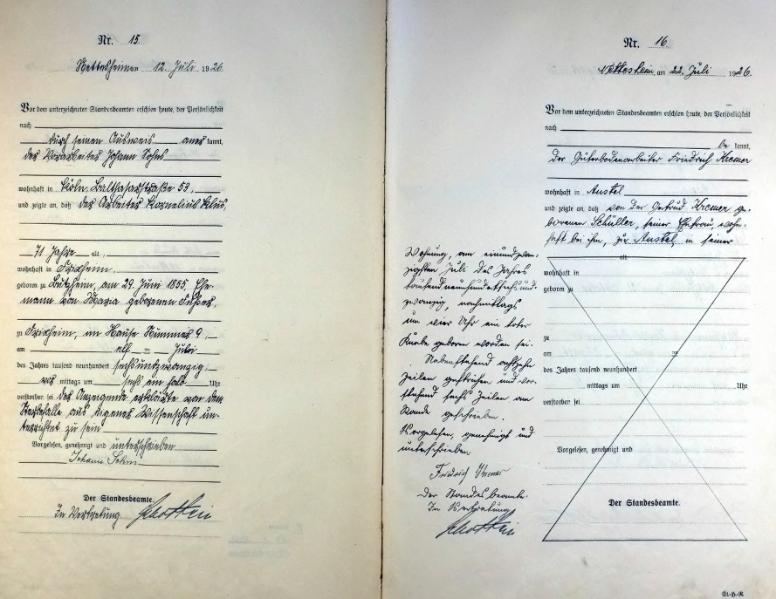 Nr. 15
Nettesheim am 12. Juli 1926.
Vor dem unterzeichneten Standesbeamten erschien heute, der Persönlichkeit
nach
durch seinen Ausweis anerkannt,
der Vorarbeiter Johann
wohnhaft in Köln, Balthasarstraße 53,
und zeigte an, daß der Arbeiter Kornelius
71 Jahre alt,
wohnhaft in Frixheim,
geboren zu Butzheim, am 29. Juni 1855, Ehe-
mann von Maria geborenen
zu Frixheim, im Hause Nummer 9,
am elf ten Juli
des Jahres tausend neunhundert sechsundzwanzig,
vor mittags um sechs ein halb Uhr
verstorben sei. Der Anzeigende erklärte von dem
Sterbefalle aus eigener Wissenschaft un-
terrichtet zu sein
Vorgelesen, genehmigt und unterschrieben
Johann
Der Standesbeamte.
In Vertretung
Nr. 16.
am 22. Juli 1926.
Vor dem unterzeichneten Standesbeamten erschien heute, der Persönlichkeit
nach
be kannt,
der Güterbodenarbeiter Friedrich Kremer
wohnhaft in Anstel
und zeigte an, daß von der Gertrud Kremer ge-
borenen Schüller, seiner Ehefrau, wohn-
haft bei ihm, zu Anstel in seiner
alt
wohnhaft in
geboren zu
zu
am ten
des Jahres tausend neunhundert
mittags um Uhr
verstorben sei.
Vorgelesen, genehmigt und
Der Standesbeamte.
Wohnung, am einundzwan-
zigsten Juli des Jahres
tausendneunhundertsechsund-
zwanzig, nachmittags
um vier Uhr ein toter
Knabe geboren worden sei.
Nebenstehend achtzehn
Zeilen gestrichen und vor-
stehend sechs Zeilen am
Rande geschrieben.
Vorgelesen, genehmigt und
unterschrieben.
Friedrich Kremer
Der Standesbeamte.
In Vertretung